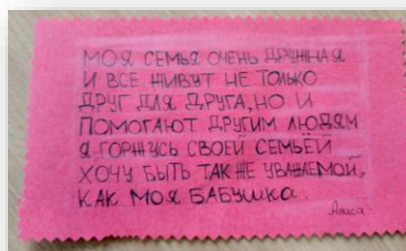 МОЯ СЕМЬЯ ОЧЕНЬ ДРУЖНАЯ
И ВСЕ ЖИВУТ НЕ ТОЛЬКО
ДРУГ ДЛЯ ДРУГА, НО И
ПОМОГАЮТ ДРУГИМ ЛЮДЯМ
Я ГОРЖУСЬ СВОЕЙ СЕМЬЁЙ
ХОЧУ БЫТЬ ТАК ЖЕ УВАЖАЕМОЙ,
КАК МОЯ БАБУШКА.
Алиса